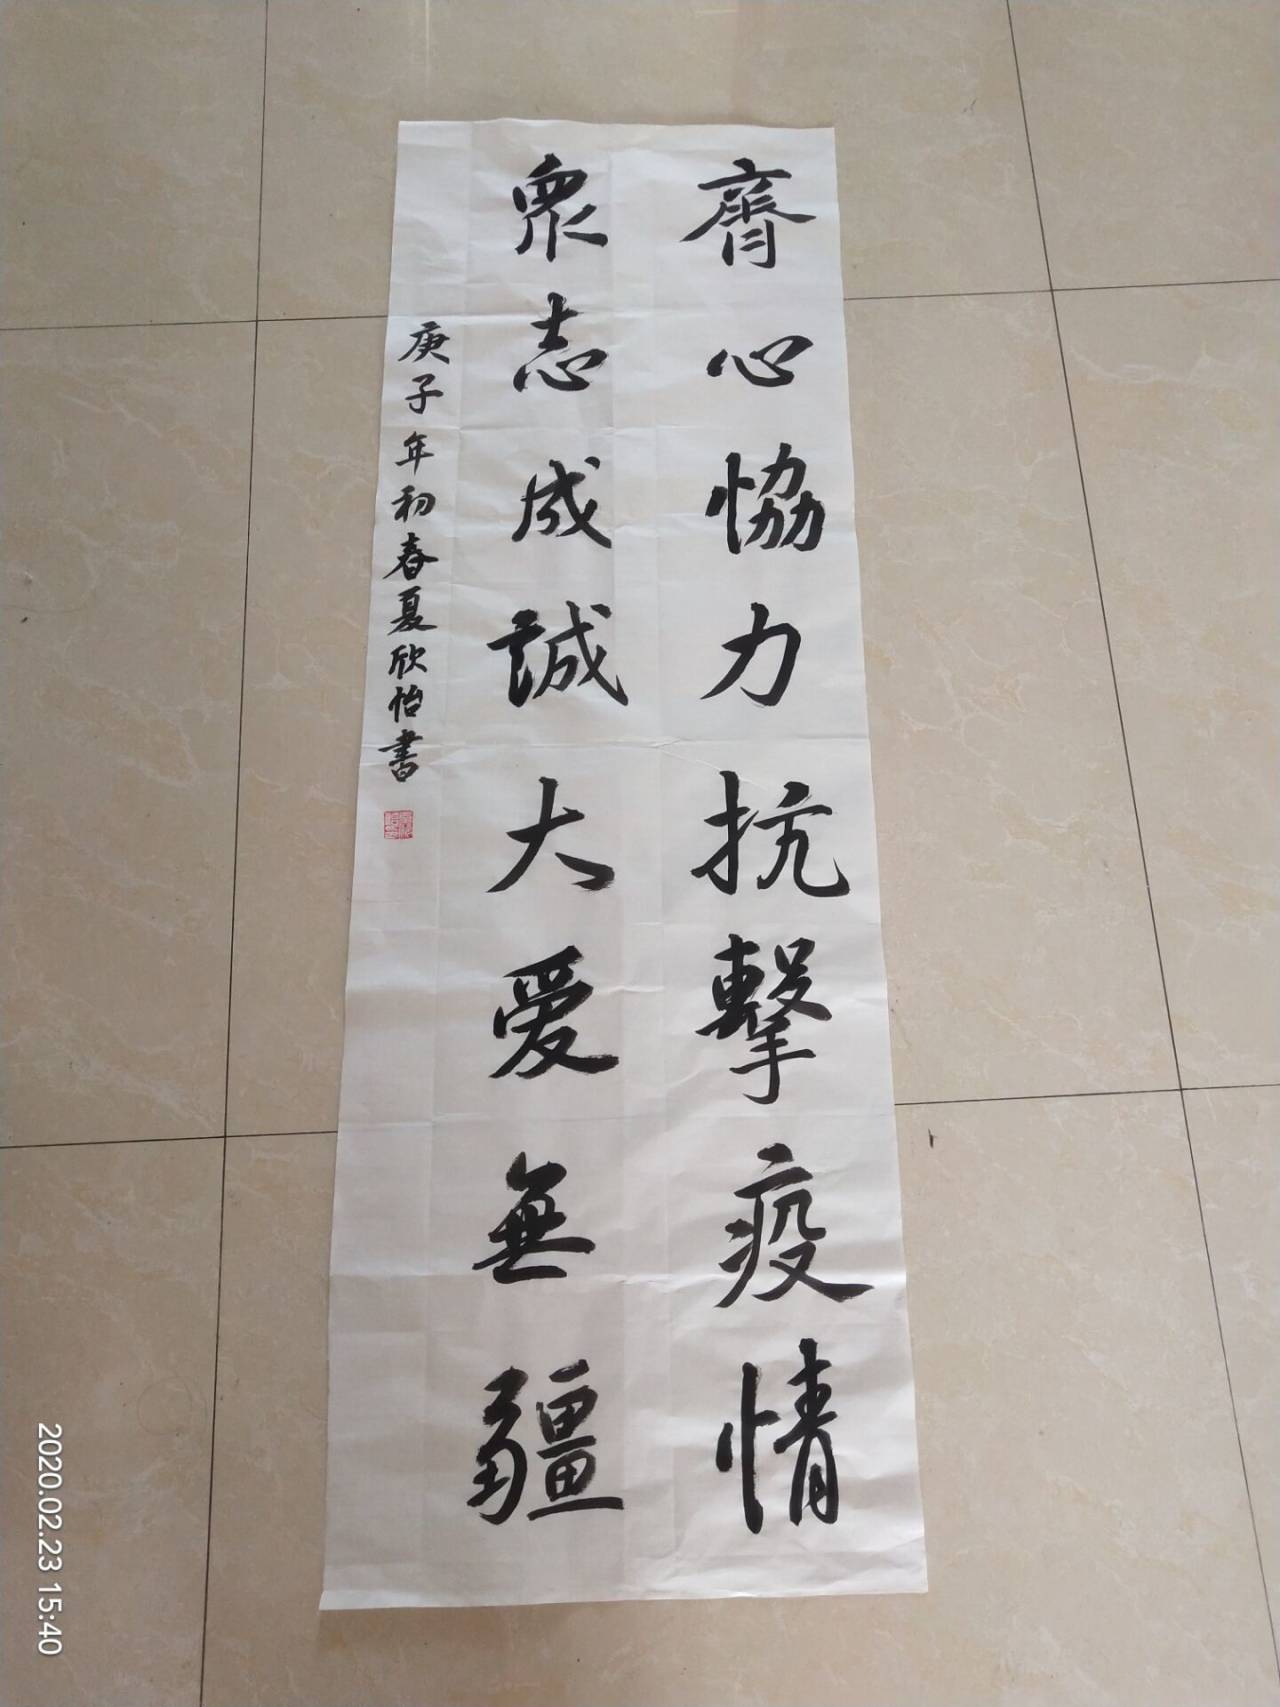 齊心恊力抗擊疫情
眾志成誠大爱無疆
庚子年初春夏欣怡書
2020.02.23 15:40